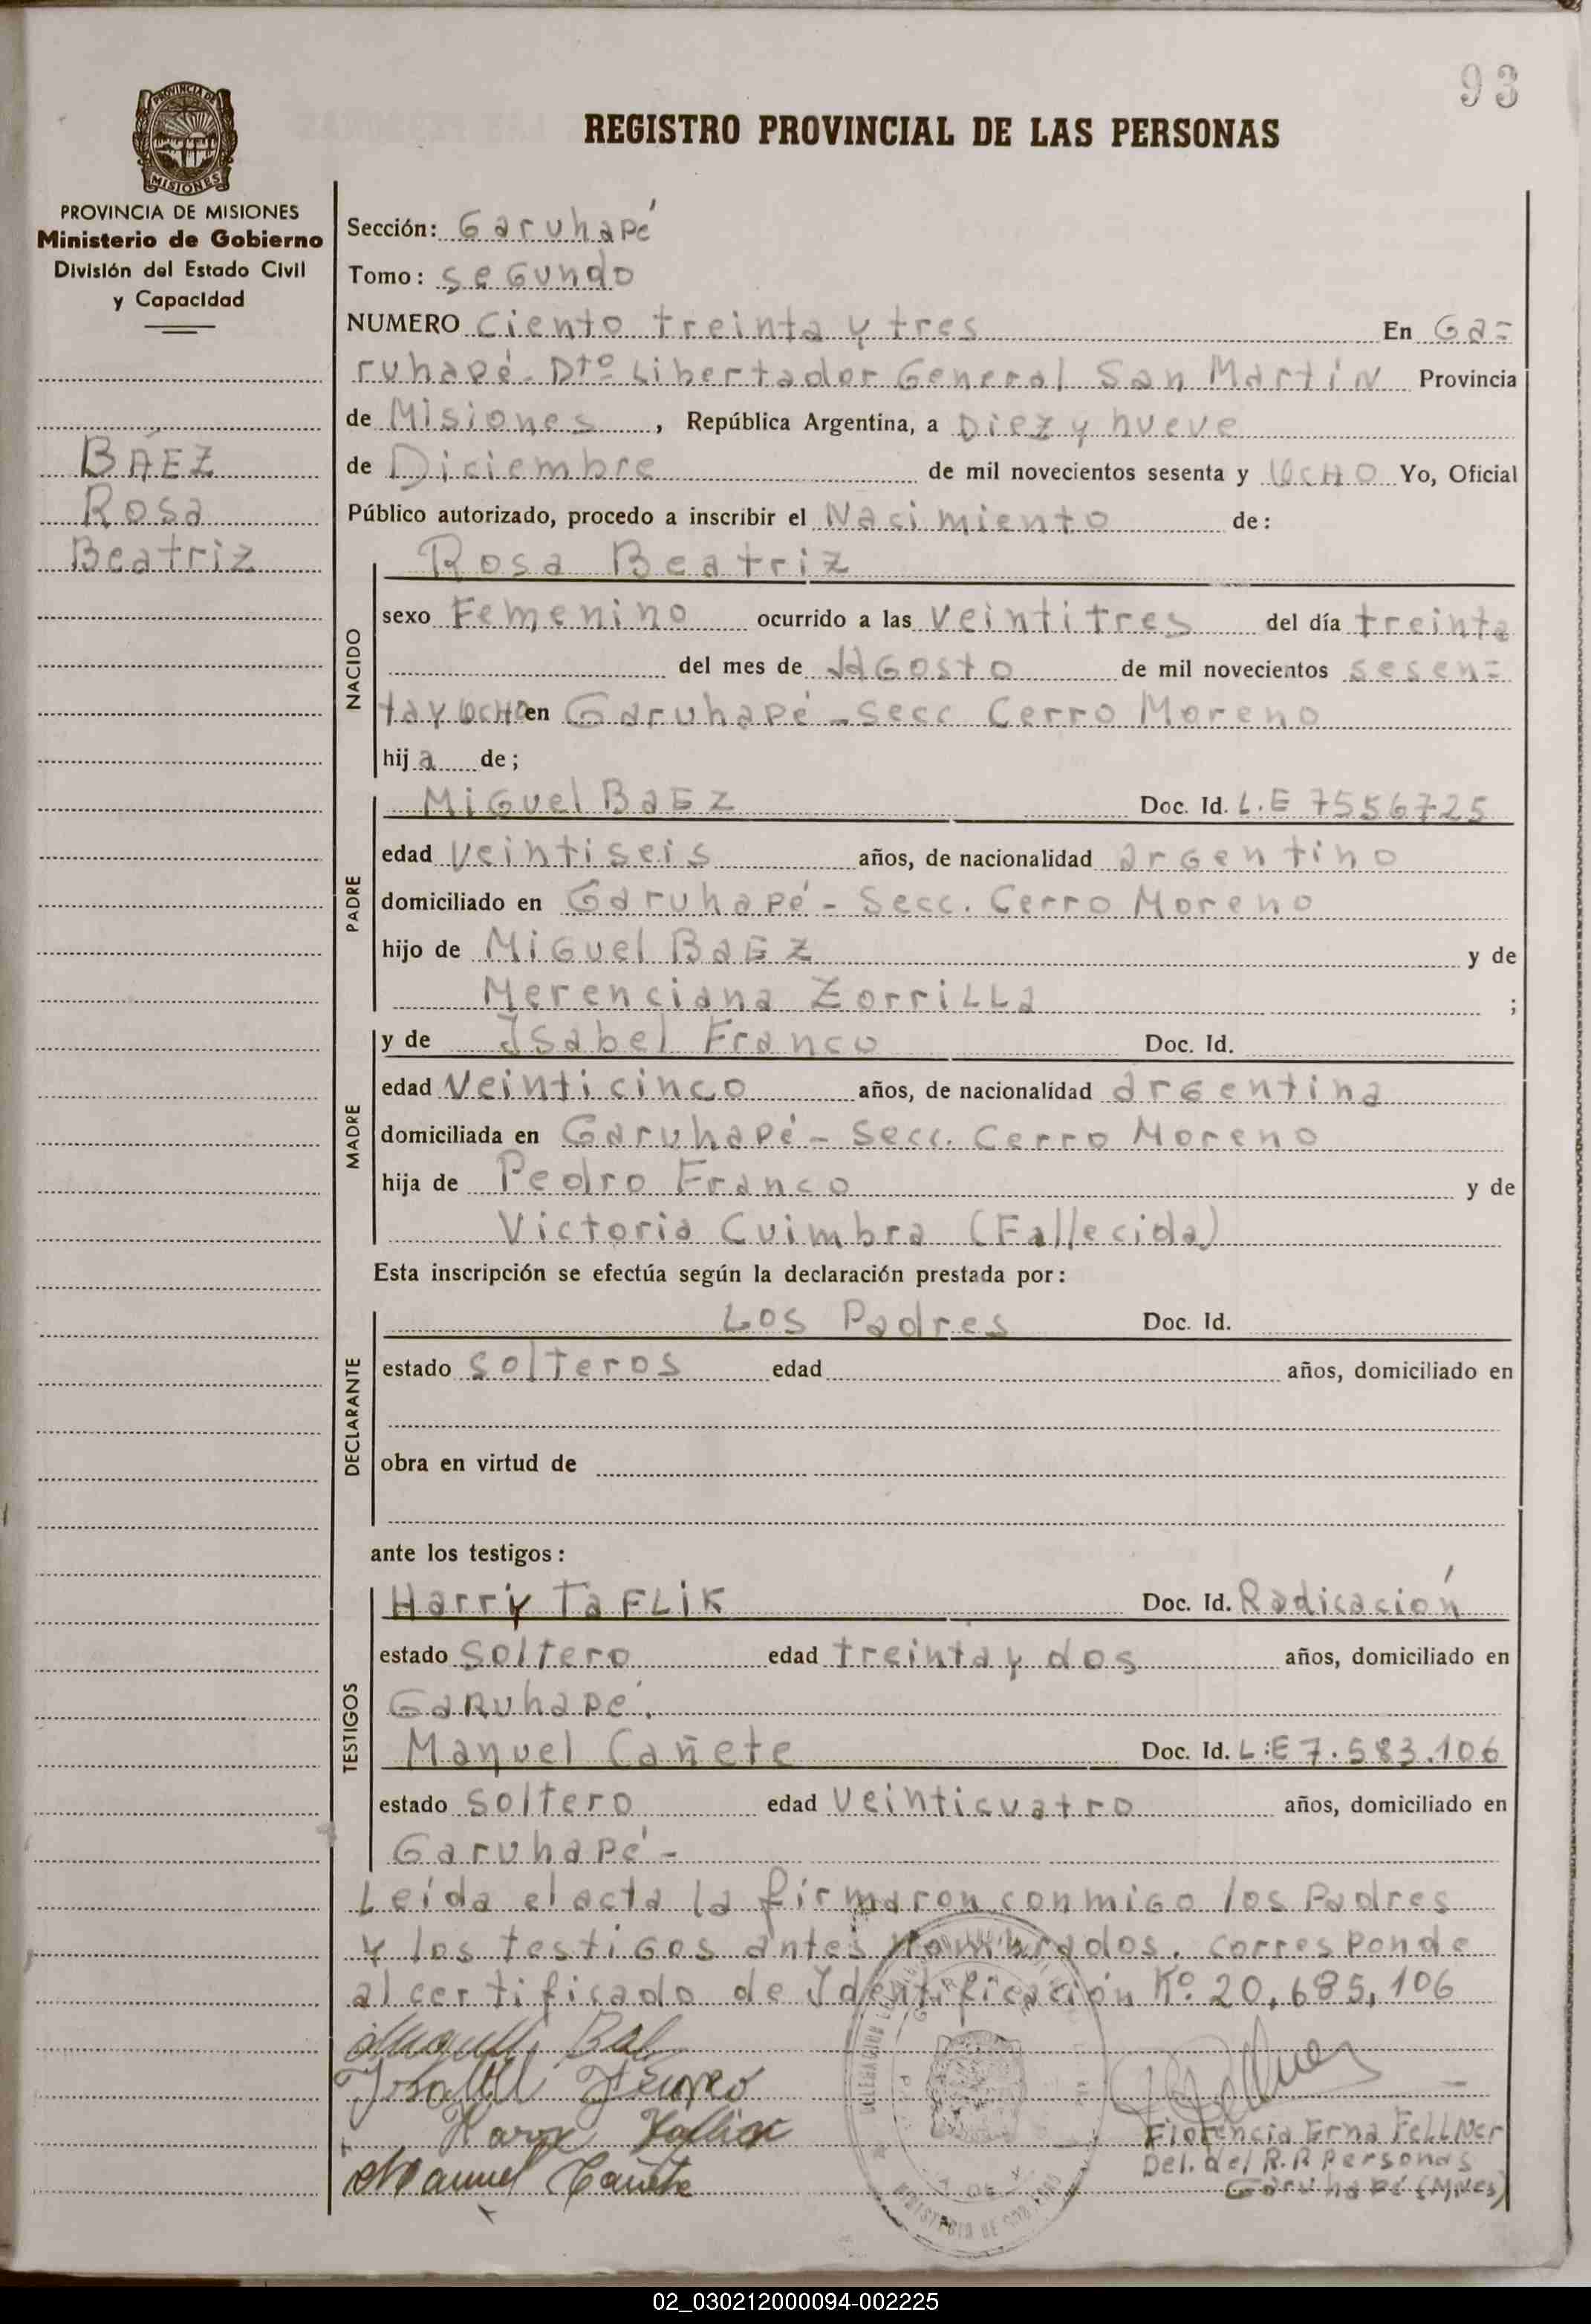 93
REGISTRO PROVINCIAL DE LAS PERSONAS
PROVINCIA DE
MISIONES
PROVINCIA DE MISIONES
Ministerio de Gobierno
División del Estado Civil
y Capacidad
BÁEZ
Rosa
Beatriz
Sección: Garuhapé
Tomo: segundo
NUMERO Ciento treinta y tres En Ga=
ruhapé - Dto Libertador General San Martín Provincia
de Misiones, República Argentina, a Diez y nueve
de Diciembre de mil novecientos sesenta y ocho Yo, Oficial
Público autorizado, procedo a inscribir el Nacimiento de:
NACIDO
Rosa Beatriz
sexo Femenino ocurrido a las veintitres del día treinta
del mes de Agosto de mil novecientos sesen=
ta y ocho en Garuhapé - Secc Cerro Moreno
hija de;
PADRE
Miguel Baez Doc. Id. L.E 7556725
edad veintiseis años, de nacionalidad argentino
domiciliado en Garuhapé - Secc. Cerro Moreno
hijo de Miguel Baez y de
Merenciana Zorrilla ;
MADRE
y de Isabel Franco Doc. Id.
edad veinticinco años, de nacionalidad argentina
domiciliada en Garuhapé - Secc. Cerro Moreno
hija de Pedro Franco y de
Victoria Cuimbra (Fallecida)
Esta inscripción se efectúa según la declaración prestada por:
DECLARANTE
Los Padres Doc. Id.
estado solteros edad años, domiciliado en
obra en virtud de
ante los testigos:
TESTIGOS
Harry Taflik Doc. Id. Radicación
estado soltero edad treinta y dos años, domiciliado en
Garuhapé.
Manuel Cañete Doc. Id. L:E 7.583.106
estado soltero edad veinticuatro años, domiciliado en
Garuhapé -
Leída el acta la firmaron conmigo los Padres
y los testigos antes nombrados. corresponde
al certificado de Identificación Nº 20,685,106
Isabel Franco
Harry Taflik
Manuel Cañete
Florencia Erna Fellner
Del. del R.P Personas
Garuhapé (Mnes)
02_030212000094-002225